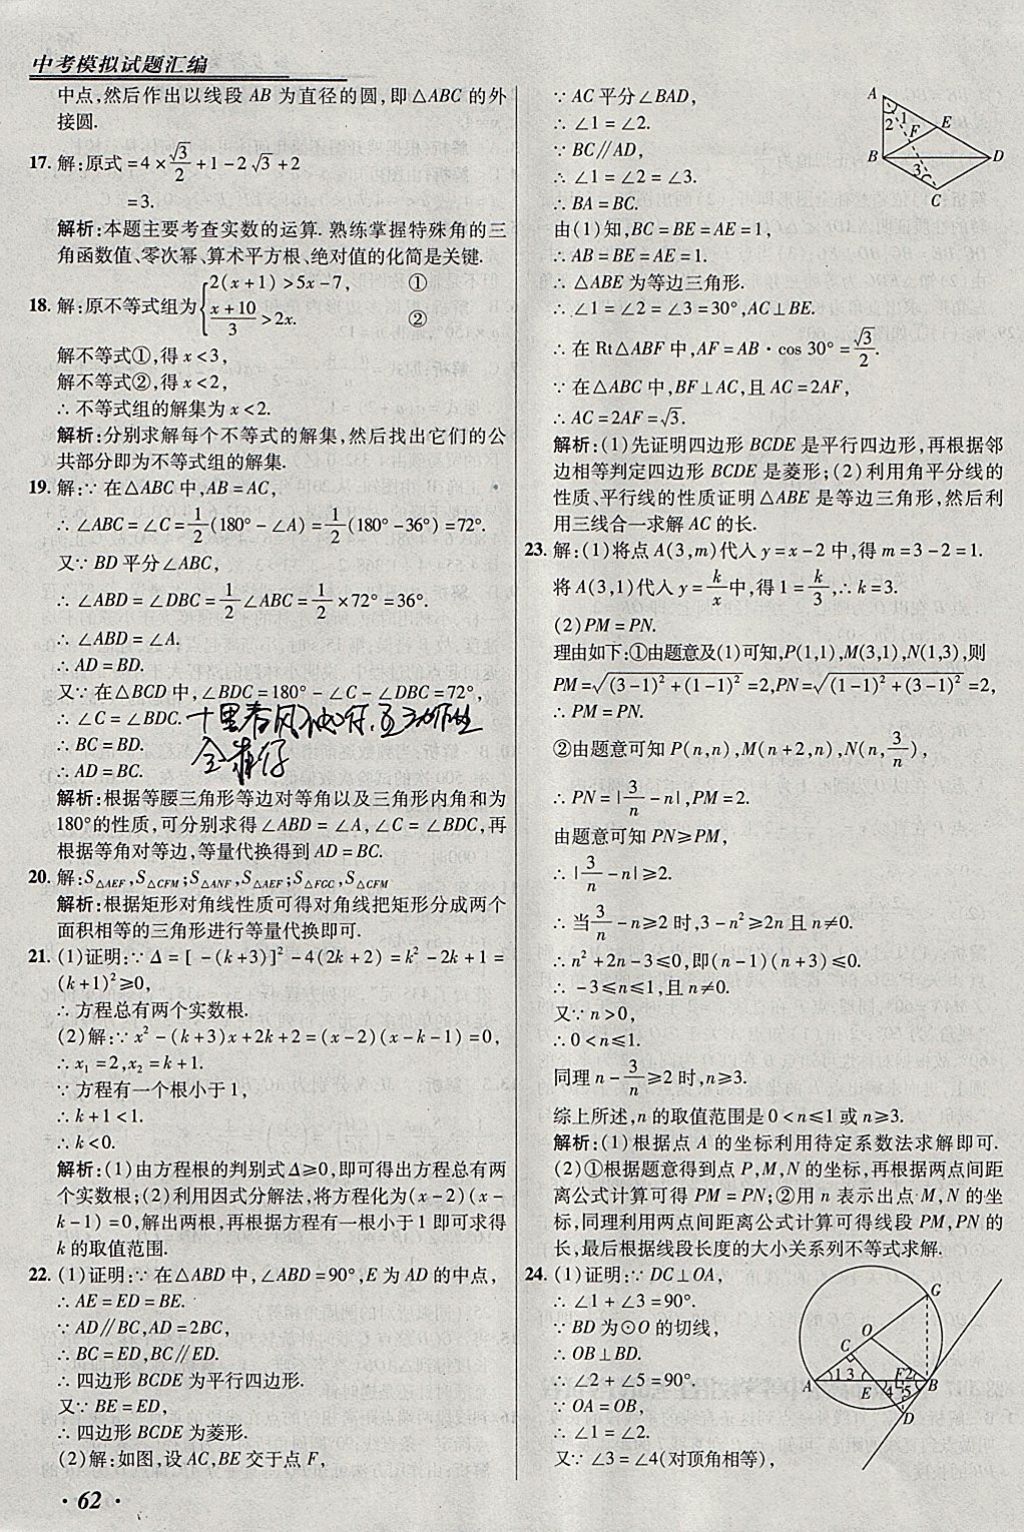 中考模拟试题汇编
中点,然后作出以线段 AB 为直径的圆,即△ABC 的外
接圆.
17. 解:原式=4×√3/2+1-2√3+2
=3.
解析:本题主要考查实数的运算. 熟练掌握特殊角的三
角函数值、零次幂、算术平方根、绝对值的化简是关键.
18. 解:原不等式组为{2(x+1)>5x-7, ①
(x+10)/3>2x. ②
解不等式①,得 x<3,
解不等式②,得 x<2,
∴不等式组的解集为 x<2.
解析:分别求解每个不等式的解集,然后找出它们的公
共部分即为不等式组的解集.
19. 解:∵在△ABC 中,AB=AC,
∴∠ABC=∠C=1/2(180°-∠A)=1/2(180°-36°)=72°.
又∵BD 平分∠ABC,
∴∠ABD=∠DBC=1/2∠ABC=1/2×72°=36°.
∴∠ABD=∠A.
∴AD=BD.
又∵在△BCD 中,∠BDC=180°-∠C-∠DBC=72°,
∴∠C=∠BDC.
∴BC=BD.
∴AD=BC.
十里春风
解析:根据等腰三角形等边对等角以及三角形内角和为
180°的性质,可分别求得∠ABD=∠A,∠C=∠BDC,再
根据等角对等边,等量代换得到 AD=BC.
20. 解:S△AEF,S△CFM;S△ANF,S△AEF;S△FGC,S△CFM
解析:根据矩形对角线性质可得对角线把矩形分成两个
面积相等的三角形进行等量代换即可.
21. (1)证明:∵Δ=[-(k+3)]²-4(2k+2)=k²-2k+1=
(k+1)²≥0,
∴方程总有两个实数根.
(2)解:∵x²-(k+3)x+2k+2=(x-2)(x-k-1)=0,
∴x₁=2,x₂=k+1.
∵方程有一个根小于 1,
∴k+1<1.
∴k<0.
解析:(1)由方程根的判别式Δ≥0,即可得出方程总有两
个实数根;(2)利用因式分解法,将方程化为(x-2)(x-
k-1)=0,解出两根,再根据方程有一根小于 1 即可求得
k 的取值范围.
22. (1)证明:∵在△ABD 中,∠ABD=90°,E 为 AD 的中点,
∴AE=ED=BE.
∵AD∥BC,AD=2BC,
∴BC=ED,BC∥ED.
∴四边形 BCDE 为平行四边形.
又∵BE=ED,
∴四边形 BCDE 为菱形.
(2)解:如图,设 AC,BE 交于点 F,
· 62 ·
∵AC 平分∠BAD,
∴∠1=∠2.
∵BC∥AD,
∴∠1=∠2=∠3.
∴BA=BC.
由(1)知,BC=BE=AE=1,
∴AB=BE=AE=1.
∴△ABE 为等边三角形.
∴∠1=∠2=∠3=30°,AC⊥BE.
∴在 Rt△ABF 中,AF=AB·cos 30°=√3/2.
∵在△ABC 中,BF⊥AC,且 AC=2AF,
∴AC=2AF=√3.
A
1
2
F
E
B
D
3
C
解析:(1)先证明四边形 BCDE 是平行四边形,再根据邻
边相等判定四边形 BCDE 是菱形;(2)利用角平分线的
性质、平行线的性质证明△ABE 是等边三角形,然后利
用三线合一求解 AC 的长.
23. 解:(1)将点 A(3,m)代入 y=x-2 中,得 m=3-2=1.
将 A(3,1)代入 y=k/x中,得 1=k/3,∴k=3.
(2)PM=PN.
理由如下:①由题意及(1)可知,P(1,1),M(3,1),N(1,3),则
PM=√((3-1)²+(1-1)²)=2,PN=√((1-1)²+(3-1)²)=2,
∴PM=PN.
②由题意可知 P(n,n),M(n+2,n),N(n,3/n),
∴PN=|3/n-n|,PM=2.
由题意可知 PN≥PM,
∴|3/n-n|≥2.
∴当3/n-n≥2 时,3-n²≥2n 且 n≠0.
∴n²+2n-3≤0,即(n-1)(n+3)≤0.
∴-3≤n≤1,且 n≠0.
又∵n>0,
∴0<n≤1.
同理 n-3/n≥2时,n≥3.
综上所述,n 的取值范围是 0<n≤1 或 n≥3.
解析:(1)根据点 A 的坐标利用待定系数法求解即可.
(2)①根据题意得到点 P,M,N 的坐标,再根据两点间距
离公式计算可得 PM=PN;②用 n 表示出点 M,N 的坐
标,同理利用两点间距离公式计算可得线段 PM,PN 的
长,最后根据线段长度的大小关系列不等式求解.
24. (1)证明:∵DC⊥OA,
∴∠1+∠3=90°.
∵BD 为⊙O 的切线,
∴OB⊥BD.
∴∠2+∠5=90°.
∵OA=OB,
∴∠1=∠2.
又∵∠3=∠4(对顶角相等),
G
O
C
E
1 3
2
A
4
5
B
D